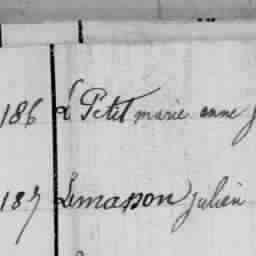 186 Le Petit marie anne
187 Lemasson julien